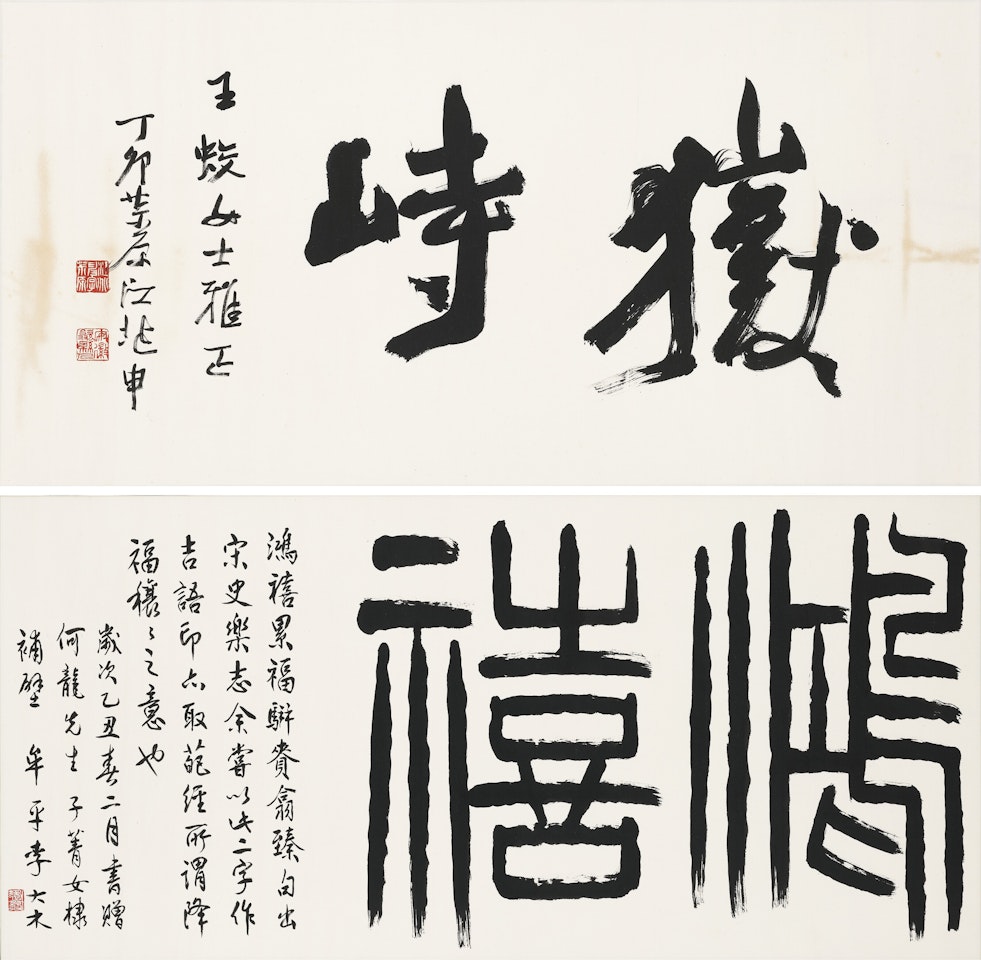 嶽峙
王蛟女士雅正
丁卯萊原江兆申
鴻禧
鴻禧累福駢賚翕臻句出
宋史樂志余嘗以此二字作
吉語印亦取葩經所謂降
福穰〻之意也
歲次乙丑春二月書贈
何龍先生子菁女棣
補壁 牟平李大木